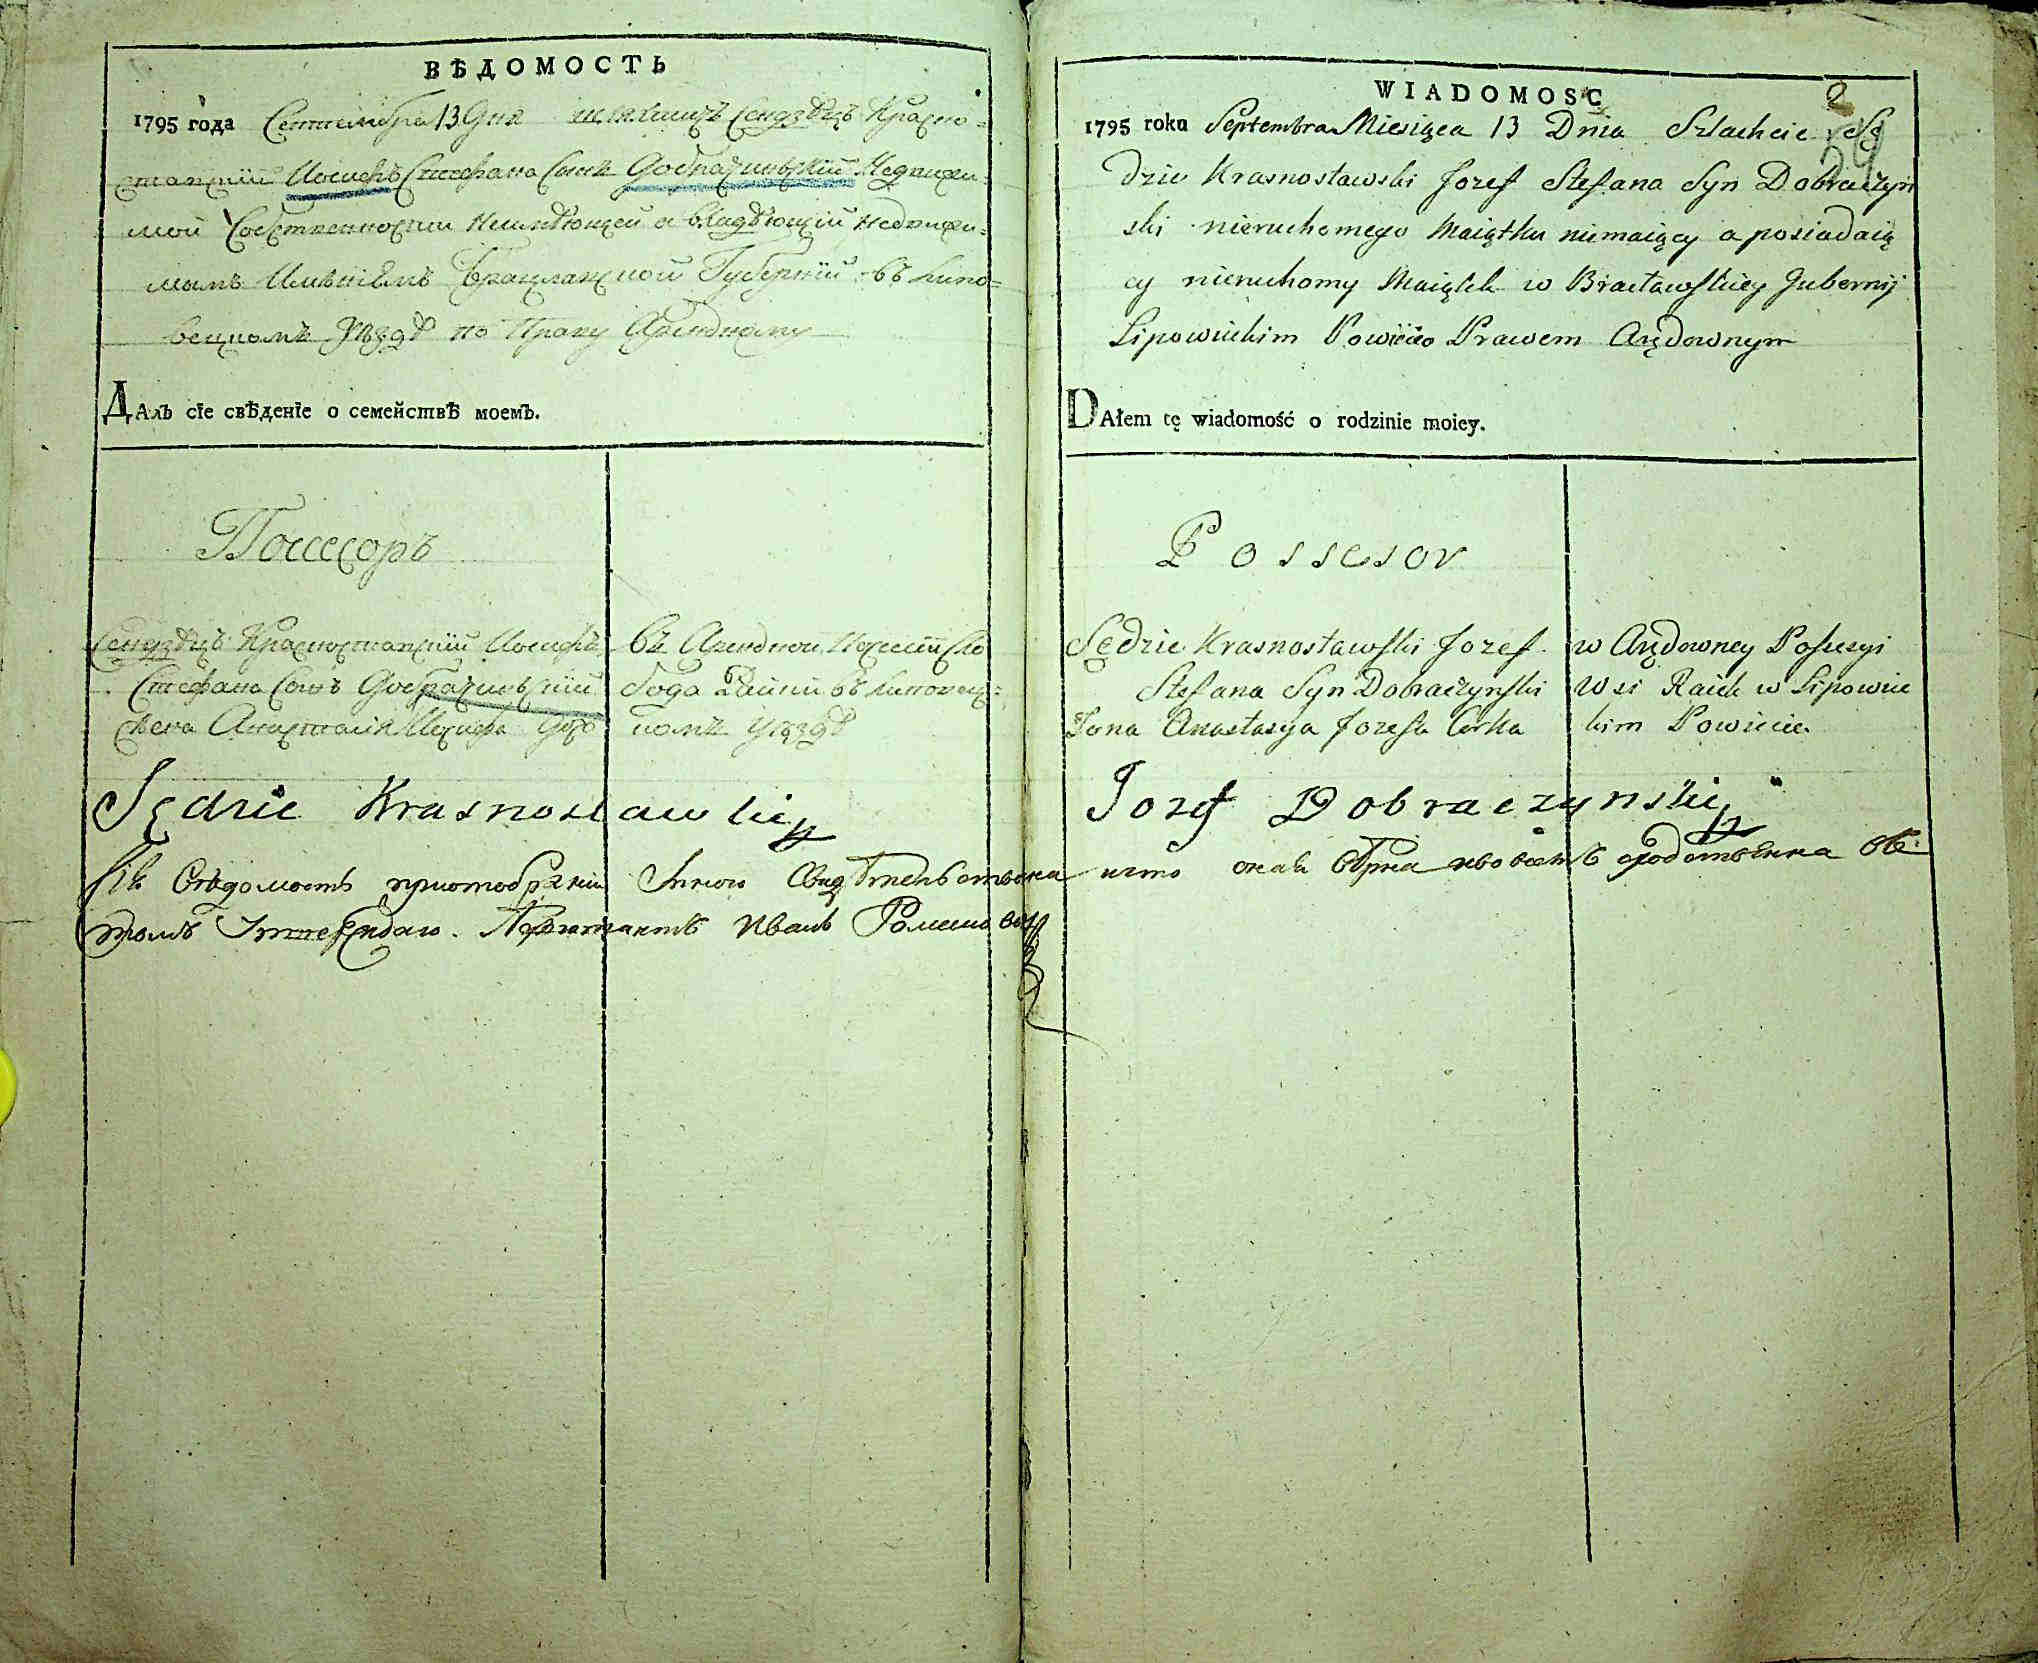 ВѢДОМОСТЬ
1795 года Септембра 13 дня шляхтичъ Сендзѣцъ Красно-
ставскiй Иосифъ Стефана Сынъ Добрачинскiй Недвижи-
мой Собственности Неимѣющей а владѣющiй недвижи-
мымъ Имѣнiемъ Брацлавской Губернiи въ Липо-
вецкомъ Уѣздѣ по Праву Арендному
ДАлъ сiе свѣденiе о семействѣ моемъ.
Поссесоръ
Сендзѣцъ Красноставскiй Иосифъ
Стефана Сынъ Добрачинскiй
Жена Анастасiя Иосифа
въ Арендной
въ Липовец-
комъ Уѣздѣ
Sędzic Krasnostawskij
Сiю Вѣдомость
Иванъ
WIADOMOSC
2
1795 roku Septembra Miesiąca 13 Dnia Szlachcic Sę
dzic Krasnostawski Jozef Stefana Syn Dobraczyn
ski nieruchomego Maiątku niemaiący a posiadaią
cy nieruchomy Maiątek w Bracławskiey Gubernij
Lipowieckim Powiecie Prawem Arędownym
DAłem tę wiadomość o rodzinie moiey.
Possesor
Sędzic Krasnostawski Jozef
Stefana Syn Dobraczynski
Żona Anastasya Jozefa Corka
w Arędowney Possesyi
Wsi Raiek w Lipowiec
kim Powiecie.
Jozef Dobraczynskij
что она вѣрна